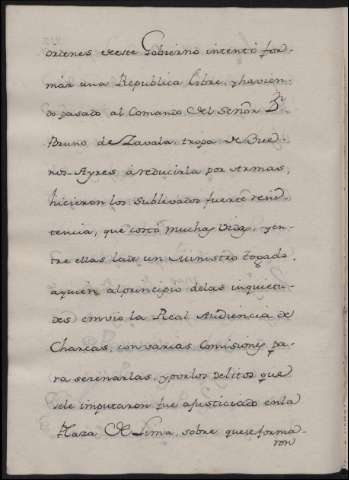 ordenes de este Gobierno intentó for-
már una Republica libre, y havien-
do pasado al Comando del Señor Dn.
Bruno de Zavala, tropa de Bue-
nos-Ayres à reducirla por Armas,
hicieron los sublevados fuerte resis-
tencia, que costó muchas vidas, y en-
tre ellas la de un Ministro togado,
aquien al principio delas inquietu-
des envio la Real Audiencia de
Charcas, con varias Comisiones pa-
ra serenarlas, y por los delitos que
sele imputaron fue ajusticiado enla
Plaza de Lima, sobre que se forma-
ron